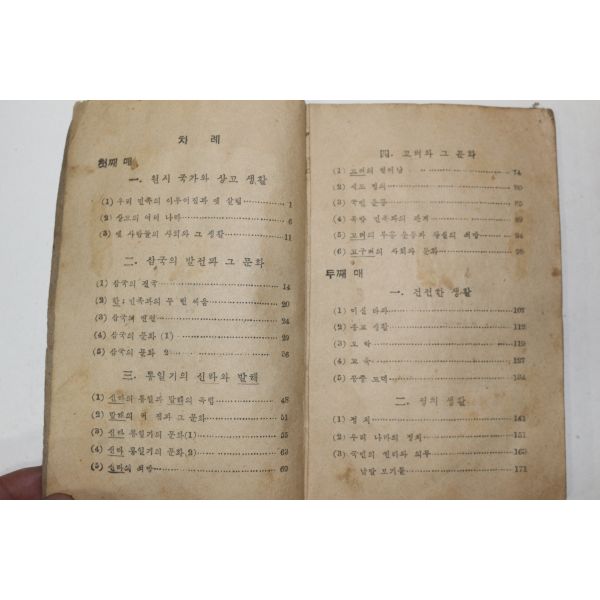 차 례
첫째 매
一. 원시 국가와 상고 생활
(1) 우리 민족의 이루어짐과 옛 살림 1
(2) 상고의 여러 나라 6
(3) 옛 사람들의 사회와 그 생활 11
二. 삼국의 발전과 그 문화
(1) 삼국의 건국 14
(2) 한: 민족과의 두 번 싸움 20
(3) 삼국의 발전 24
(4) 삼국의 문화 (1) 29
(5) 삼국의 문화 2) 36
三. 통일기의 신라와 발해
(1) 신라의 통일과 발해의 독립 48
(2) 발해의 과 그 문화 51
(3) 신라 통일기의 문화(1) 55
(4) 신라 통일기의 문화,2) 63
(5) 신라의 69
四. 고려와 그 문화
(1) 고려의 일어남 74
(2) 정치 80
(3) 국민 운동 85
(4) 북방 민족과의 관계 89
(5) 고려의 부흥 운동과 왕실의 94
(6) 고구려의 사회와 문화 98
두째 매
一. 건전한 생활
(1) 미신 타파 107
(2) 종교 생활 112
(3) 오 락 119
(4) 교 육 127
(5) 공중 도덕 134
二. 정의 생활
(1) 정 치 141
(2) 우리 나라의 정치 151
(3) 국민의 권리와 의무 163
낱말 보기틀 171